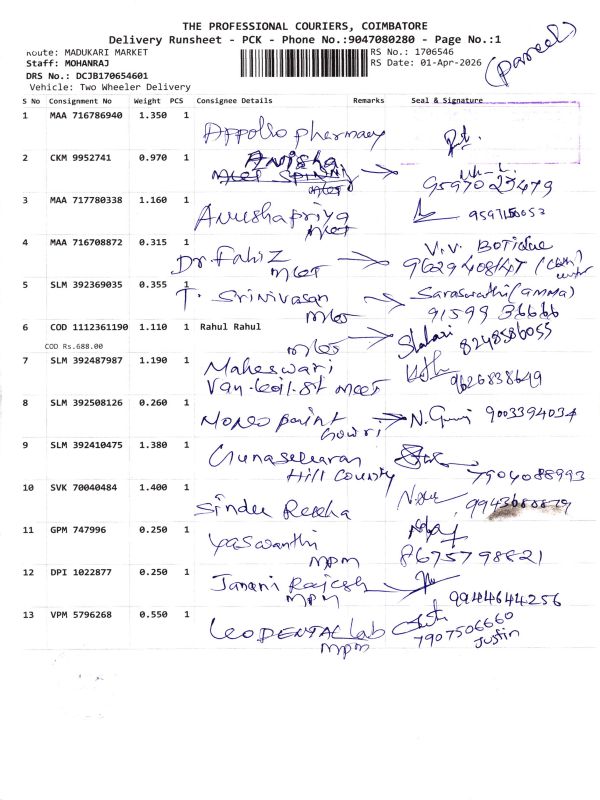 THE PROFESSIONAL COURIERS, COIMBATORE
Delivery Runsheet - PCK - Phone No.:9047080280 - Page No.:1
(Parcel)
Route: MADUKARI MARKET RS No.: 1706546
Staff: MOHANRAJ RS Date: 01-Apr-2026
DRS No.: DCJB170654601
Vehicle: Two Wheeler Delivery
S No Consignment No Weight PCS Consignee Details Remarks Seal & Signature
1 MAA 716786940 1.350 1
Appollo pharmacy
2 CKM 9952741 0.970 1 Anisha
3 MAA 717780338 1.160 1
Anushapriya
4 MAA 716708872 0.315 1
Dr. Fahiz
5 SLM 392369035 0.355 1
T. Srinivasan Saraswathi (amma)
91599 36666
6 COD 1112361190 1.110 1 Rahul Rahul
COD Rs.688.00 8248586055
7 SLM 392487987 1.190 1 Maheswari
9626838649
8 SLM 392508126 0.260 1
9003394034
9 SLM 392410475 1.380 1 Gunasekaran
Hill County 7904088993
10 SVK 70040484 1.400 1
11 GPM 747996 0.250 1
Yaswanthi
mpm 8675798821
12 DPI 1022877 0.250 1
Janani Rajesh
mpm 9944644256
13 VPM 5796268 0.550 1
Leo DENTAL Lab 7907506660
mpm Justin